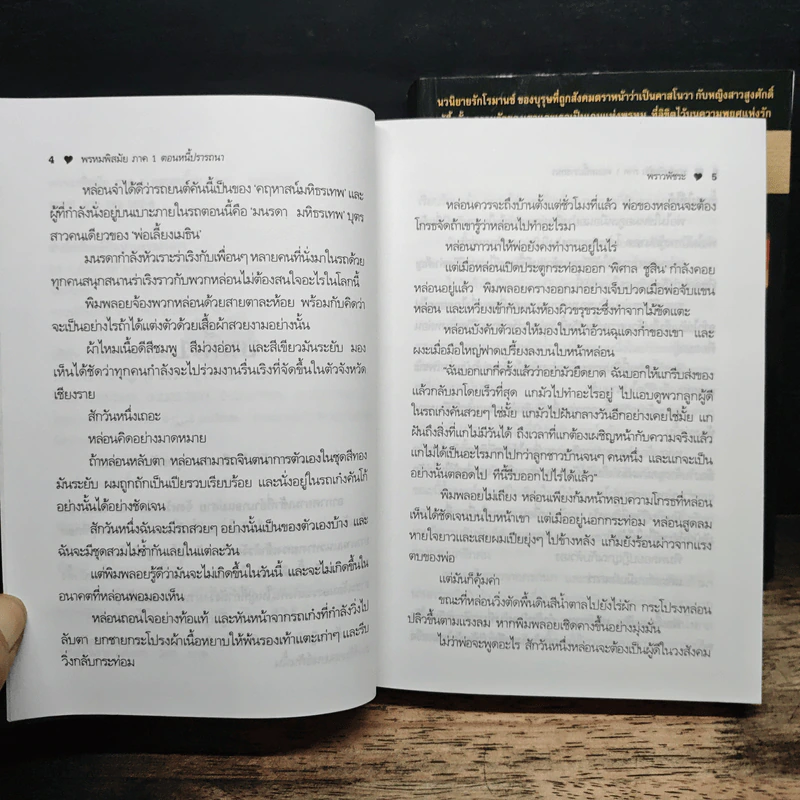 นวนิยายรักโรมานซ์ ของบุรุษที่ถูกสังคมตราหน้าว่าเป็นคาสโนวา กับหญิงสาวสูงศักดิ์
4 ♥ พรหมพิสมัย ภาค 1 ตอนหนี้ปรารถนา
หล่อนจำได้ดีว่ารถยนต์คันนี้เป็นของ ‘คฤหาสน์มหิธรเทพ’ และ
ผู้ที่กำลังนั่งอยู่บนเบาะภายในรถตอนนี้คือ ‘มนรดา มหิธรเทพ’ บุตร
สาวคนเดียวของ ‘พ่อเลี้ยงเมธิน’
มนรดากำลังหัวเราะร่าเริงกับเพื่อนๆ หลายคนที่นั่งมาในรถด้วย
ทุกคนสนุกสนานร่าเริงราวกับพวกหล่อนไม่ต้องสนใจอะไรในโลกนี้
พิมพลอยจ้องพวกหล่อนด้วยสายตาละห้อย พร้อมกับคิดว่า
จะเป็นอย่างไรถ้าได้แต่งตัวด้วยเสื้อผ้าสวยงามอย่างนั้น
ผ้าไหมเนื้อดีสีชมพู สีม่วงอ่อน และสีเขียวมันระยับ มอง
เห็นได้ชัดว่าทุกคนกำลังจะไปร่วมงานรื่นเริงที่จัดขึ้นในตัวจังหวัด
เชียงราย
สักวันหนึ่งเถอะ
หล่อนคิดอย่างมาดหมาย
ถ้าหล่อนหลับตา หล่อนสามารถจินตนาการตัวเองในชุดสีทอง
มันระยับ ผมถูกถักเป็นเปียรวบเรียบร้อย และนั่งอยู่ในรถเก๋งคันโก้
อย่างนั้นได้อย่างชัดเจน
สักวันหนึ่งฉันจะมีรถสวยๆ อย่างนั้นเป็นของตัวเองบ้าง และ
ฉันจะมีชุดสวมไม่ซ้ำกันเลยในแต่ละวัน
แต่พิมพลอยรู้ดีว่ามันจะไม่เกิดขึ้นในวันนี้ และจะไม่เกิดขึ้นใน
อนาคตที่หล่อนพอมองเห็น
หล่อนถอนใจอย่างท้อแท้ และหันหน้าจากรถเก๋งที่กำลังวิ่งไป
ลับตา ยกชายกระโปรงผ้าเนื้อหยาบให้พ้นรองเท้าแตะเก่าๆ และรีบ
วิ่งกลับกระท่อม
พราวพัชระ ♥ 5
หล่อนควรจะถึงบ้านตั้งแต่ชั่วโมงที่แล้ว พ่อของหล่อนจะต้อง
โกรธจัดถ้าเขารู้ว่าหล่อนไปทำอะไรมา
หล่อนภาวนาให้พ่อยังคงทำงานอยู่ในไร่
แต่เมื่อหล่อนเปิดประตูกระท่อมออก ‘พิศาล ชูสิน’ กำลังคอย
หล่อนอยู่แล้ว พิมพลอยครางออกมาอย่างเจ็บปวดเมื่อพ่อจับแขน
หล่อน และเหวี่ยงเข้ากับผนังห้องผิวขรุขระซึ่งทำจากไม้ขัดแตะ
หล่อนบังคับตัวเองให้มองใบหน้าอ้วนฉุแดงก่ำของเขา และ
ผงะเมื่อมือใหญ่ฟาดเปรี้ยงลงบนใบหน้าหล่อน
“ฉันบอกแกกี่ครั้งแล้วว่าอย่ามัวยืดยาด ฉันบอกให้แกรีบส่งของ
แล้วกลับมาโดยเร็วที่สุด แกมัวไปทำอะไรอยู่ ไปแอบดูพวกลูกผู้ดี
ในรถเก๋งคันสวยๆ ใช่มั้ย แกมัวไปฝันกลางวันอีกอย่างเคยใช่มั้ย แก
ฝันถึงสิ่งที่แกไม่มีวันได้ ถึงเวลาที่แกต้องเผชิญหน้ากับความจริงแล้ว
แกไม่ได้เป็นอะไรมากไปกว่าลูกชาวบ้านจนๆ คนหนึ่ง และแกจะเป็น
อย่างนั้นตลอดไป ทีนี้รีบออกไปไร่ได้แล้ว”
พิมพลอยไม่เถียง หล่อนเพียงก้มหน้าหลบความโกรธที่หล่อน
เห็นได้ชัดเจนบนใบหน้าเขา แต่เมื่ออยู่นอกกระท่อม หล่อนสูดลม
หายใจยาวและเสยผมเปียยุ่งๆ ไปข้างหลัง แก้มยังร้อนผ่าวจากแรง
ตบของพ่อ
แต่มันก็คุ้มค่า
ขณะที่หล่อนวิ่งตัดพื้นดินสีน้ำตาลไปยังไร่ผัก กระโปรงหล่อน
ปลิวขึ้นตามแรงลม หากพิมพลอยเชิดคางขึ้นอย่างมุ่งมั่น
ไม่ว่าพ่อจะพูดอะไร สักวันหนึ่งหล่อนจะต้องเป็นผู้ดีในวงสังคม